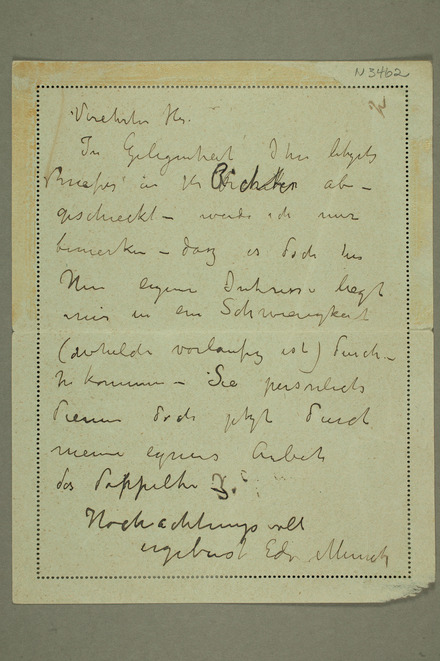 N 3462
Verehrter Hr.
In Gelegenheit Ihr letzts
Briefes in Hr Richter ab –
geschickt – werde ich nur
bemerken – dasz es doch im
Ihren eigene Intresse liegt
mir in ein Schwierigkeit
vorlaufig ist) durch –
zu kommen – Sie personlich
dienen doch jetzt durch
meine eigenes Arbeit
das doppelte
Hochachtungsvoll
ergebenst Edv Munch